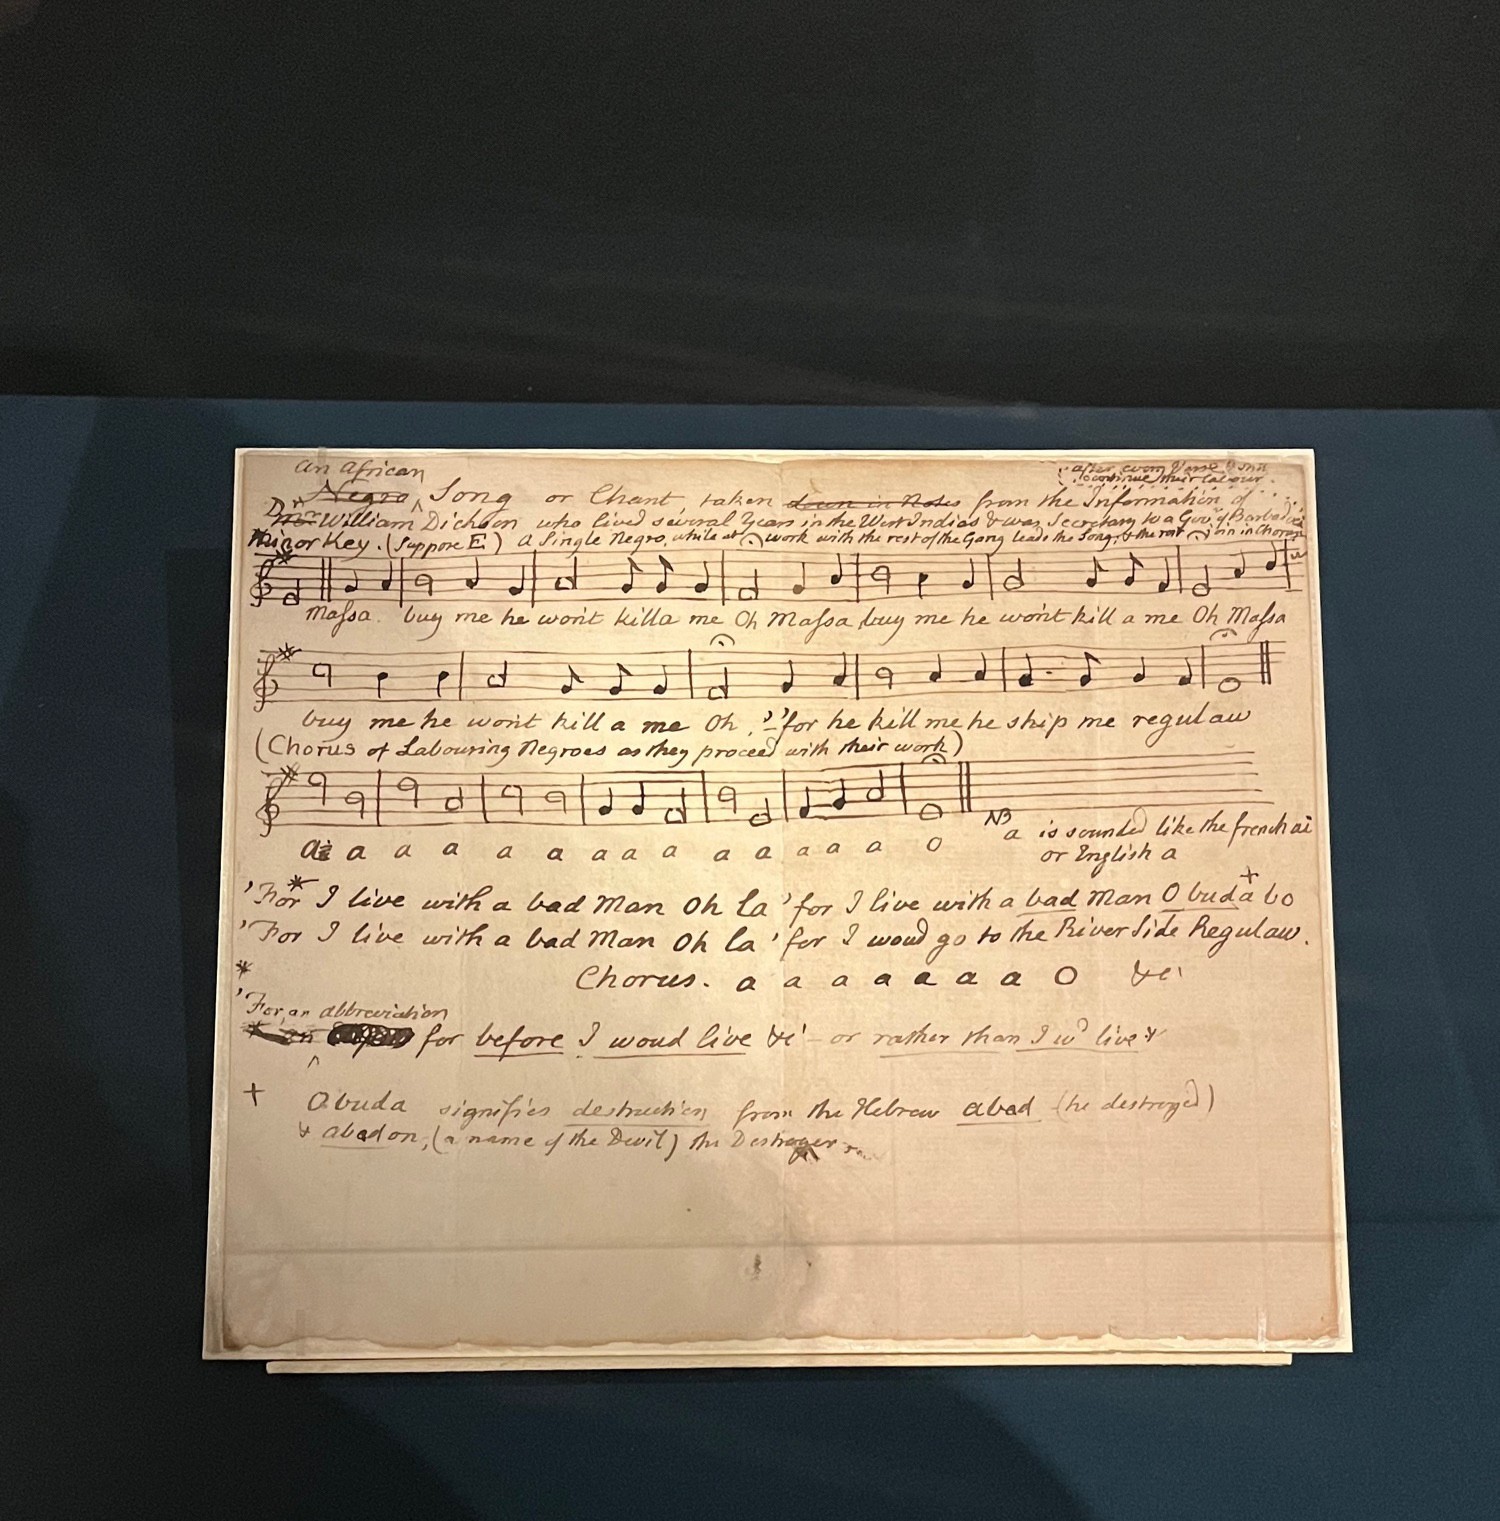 an African
Negro Song or Chant, taken down in Notes from the Information of
after every Verse & still continue their labour
Dr Mr William Dickson who lived several Years in the West Indies & was Secretary to a Govr. of Barbadoes
Minor Key. (Suppose E.) A Single Negro, while at work with the rest of the Gang leads the Song, & the rest join in Chorus
Massa buy me he won't killa me Oh Massa buy me he won't kill a me Oh Massa
buy me he won't kill a me Oh, 'for he kill me he ship me regulaw
(Chorus of Labouring Negroes as they proceed with their work)
a a a a a a a a a a a a a a o
NB a is sounded like the french ai
or English a
'For * I live with a bad Man Oh la 'for I live with a bad Man O buda + bo
'For I live with a bad Man Oh la 'for I woud go to the River Side Regulaw.
*
Chorus. a a a a a a a O &c'
'For, an abbreviation
* an for before I woud live &c' – or rather than I wd live &
+ Obuda signifies destruction from the Hebrew abad (he destroyed)
& abadon, (a name of the Devil) the Destroyer